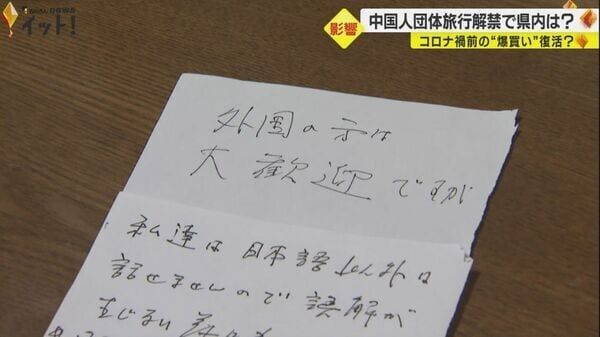 イット!
影響
中国人団体旅行解禁で県内は?
コロナ禍前の“爆買い”復活?
外国の方は
大歓迎ですが
私達は日本語以外は
話せませんので誤解が
生じない